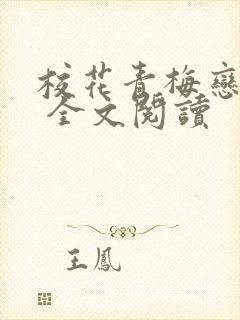 校花青梅戀
全文閱讀
王鳳